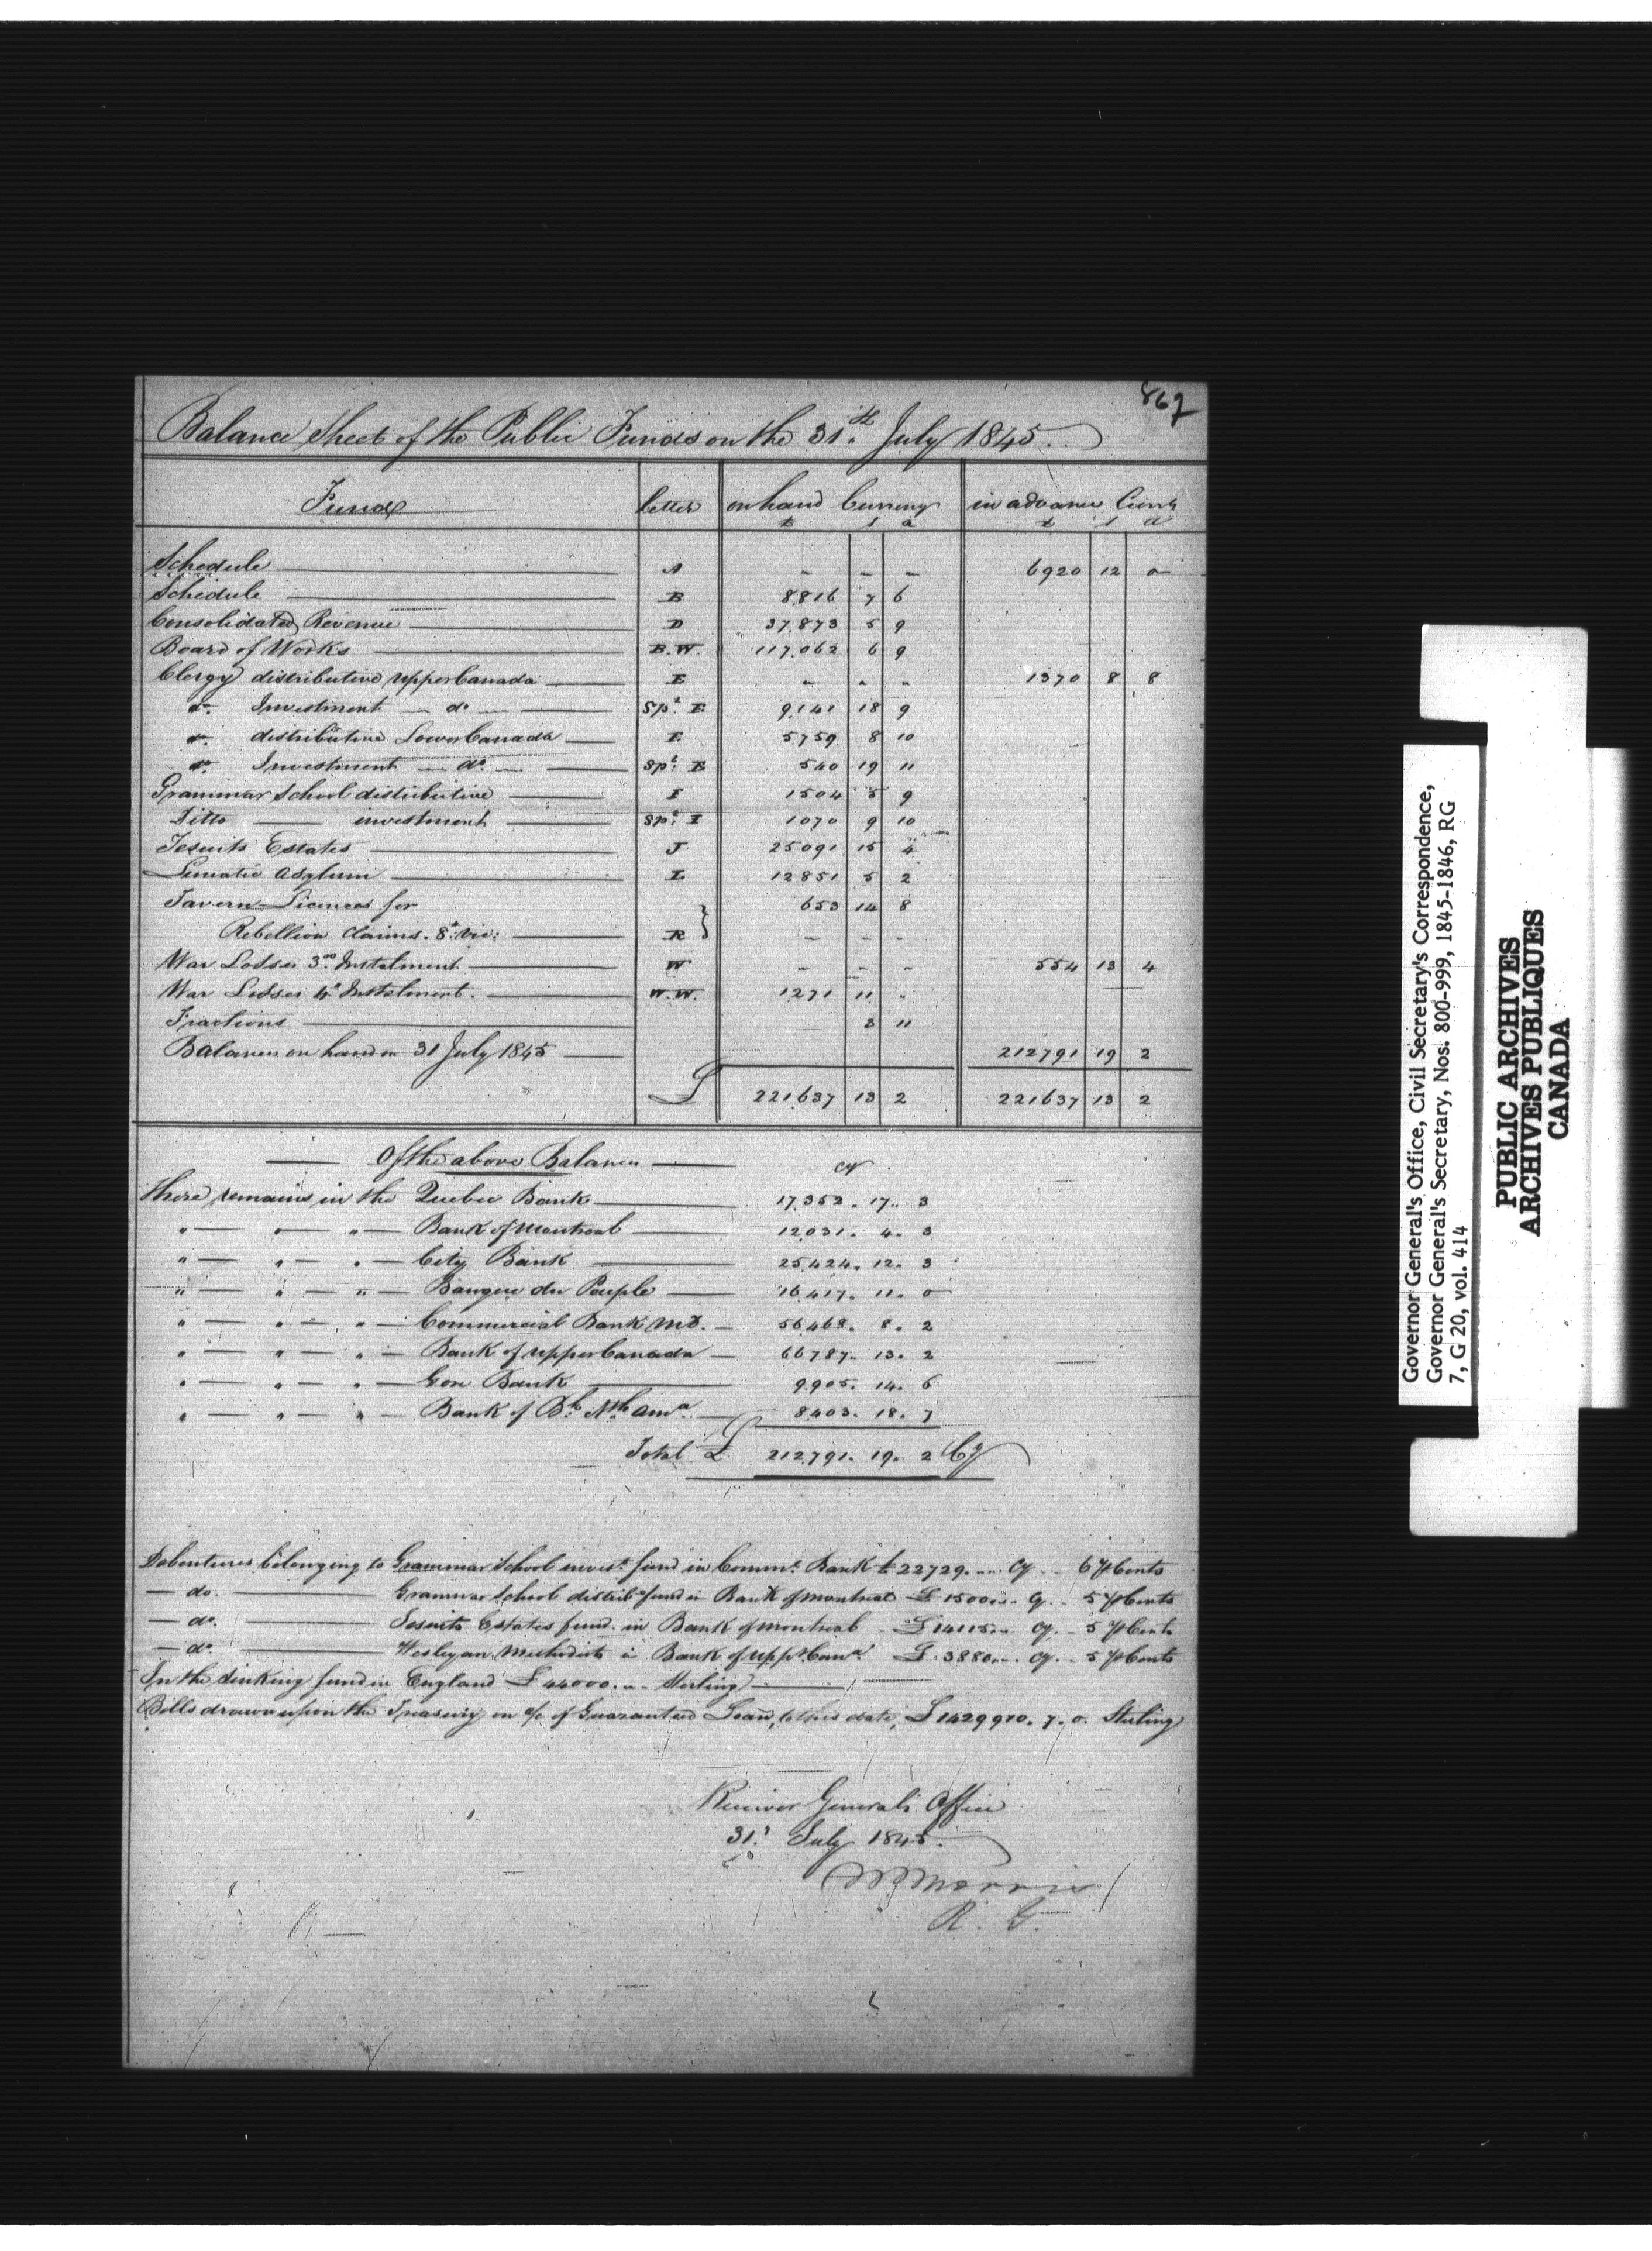 867
Balance Sheet of the Public Funds on the 31st July 1845
Fund letter on hand Currency in advance Curry
£ s d £ s d
Schedule A - - - 6920 12 0
Schedule B 8816 7 6
Consolidated Revenue D 37,873 5 9
Board of Works B.W. 117,062 6 9
Clergy distributive Upper Canada E - - - 1370 8 8
do Investment do Spl. E 9,141 18 9
do distributive Lower Canada E 5,759 8 10
do Investment do Spl. E 540 19 11
Grammar School distributive I 1504 5 9
Ditto investment Spl. I 1070 9 10
Jesuits Estates J 25091 15 4
Lunatic Asylum L 12851 5 2
Tavern Licences for 653 14 8
Rebellion Claims. 8th Vic: R - - -
War Losses 3rd Instalment W - - - 554 13 4
War Losses 4th Instalment. W.W. 1271 11 -
Fractions 3 11
Balance on hand on 31 July 1845 212791 19 2
£ 221,637 13 2 221637 13 2
Of the above Balance Cy
there remains in the Quebec Bank 17,352. 17. 3
" " " Bank of Montreal 12,031. 4. 3
" " " City Bank 25,424. 12. 3
" " " Banque du Peuple 16,417. 11. 0
" " " Commercial Bank M.D. 56,468. 8. 2
" " " Bank of Upper Canada 66787. 13. 2
" " " Gore Bank 9,905. 14. 6
" " " Bank of Bh. Nth Ama. 8,403. 18. 7
Total £ 212,791. 19. 2 Cy
Debentures belonging to Grammar School invest. fund in Comml. Bank £ 22729. Cy 6 ⅌ Cents
do. Grammar School distribe. fund in Bank of Montreal £ 1500 Cy. 5 ⅌ Cents
do. Jesuits Estates fund. in Bank of Montreal £ 14115 Cy. 5 ⅌ Cents
do. Wesleyan Methodists in Bank of Uppr. Cana. £ 3880 Cy. 5 ⅌ Cents
In the sinking fund in England £ 44000. Sterling
Bills drawn upon the Treasury on a/c of Guaranteed Loan, to this date, £ 1429970. 7. 0. Sterling
Receiver General's Office
31st July 1845.
W Morris
R. G.
Governor General's Office, Civil Secretary's Correspondence,
Governor General's Secretary, Nos. 800-999, 1845-1846, RG
7, G 20, vol. 414
PUBLIC ARCHIVES
ARCHIVES PUBLIQUES
CANADA